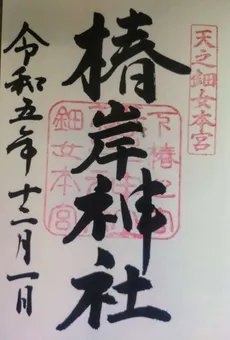 天之鈿女本宮
椿岸神社
令和五年十二月一日
鈿女本宮